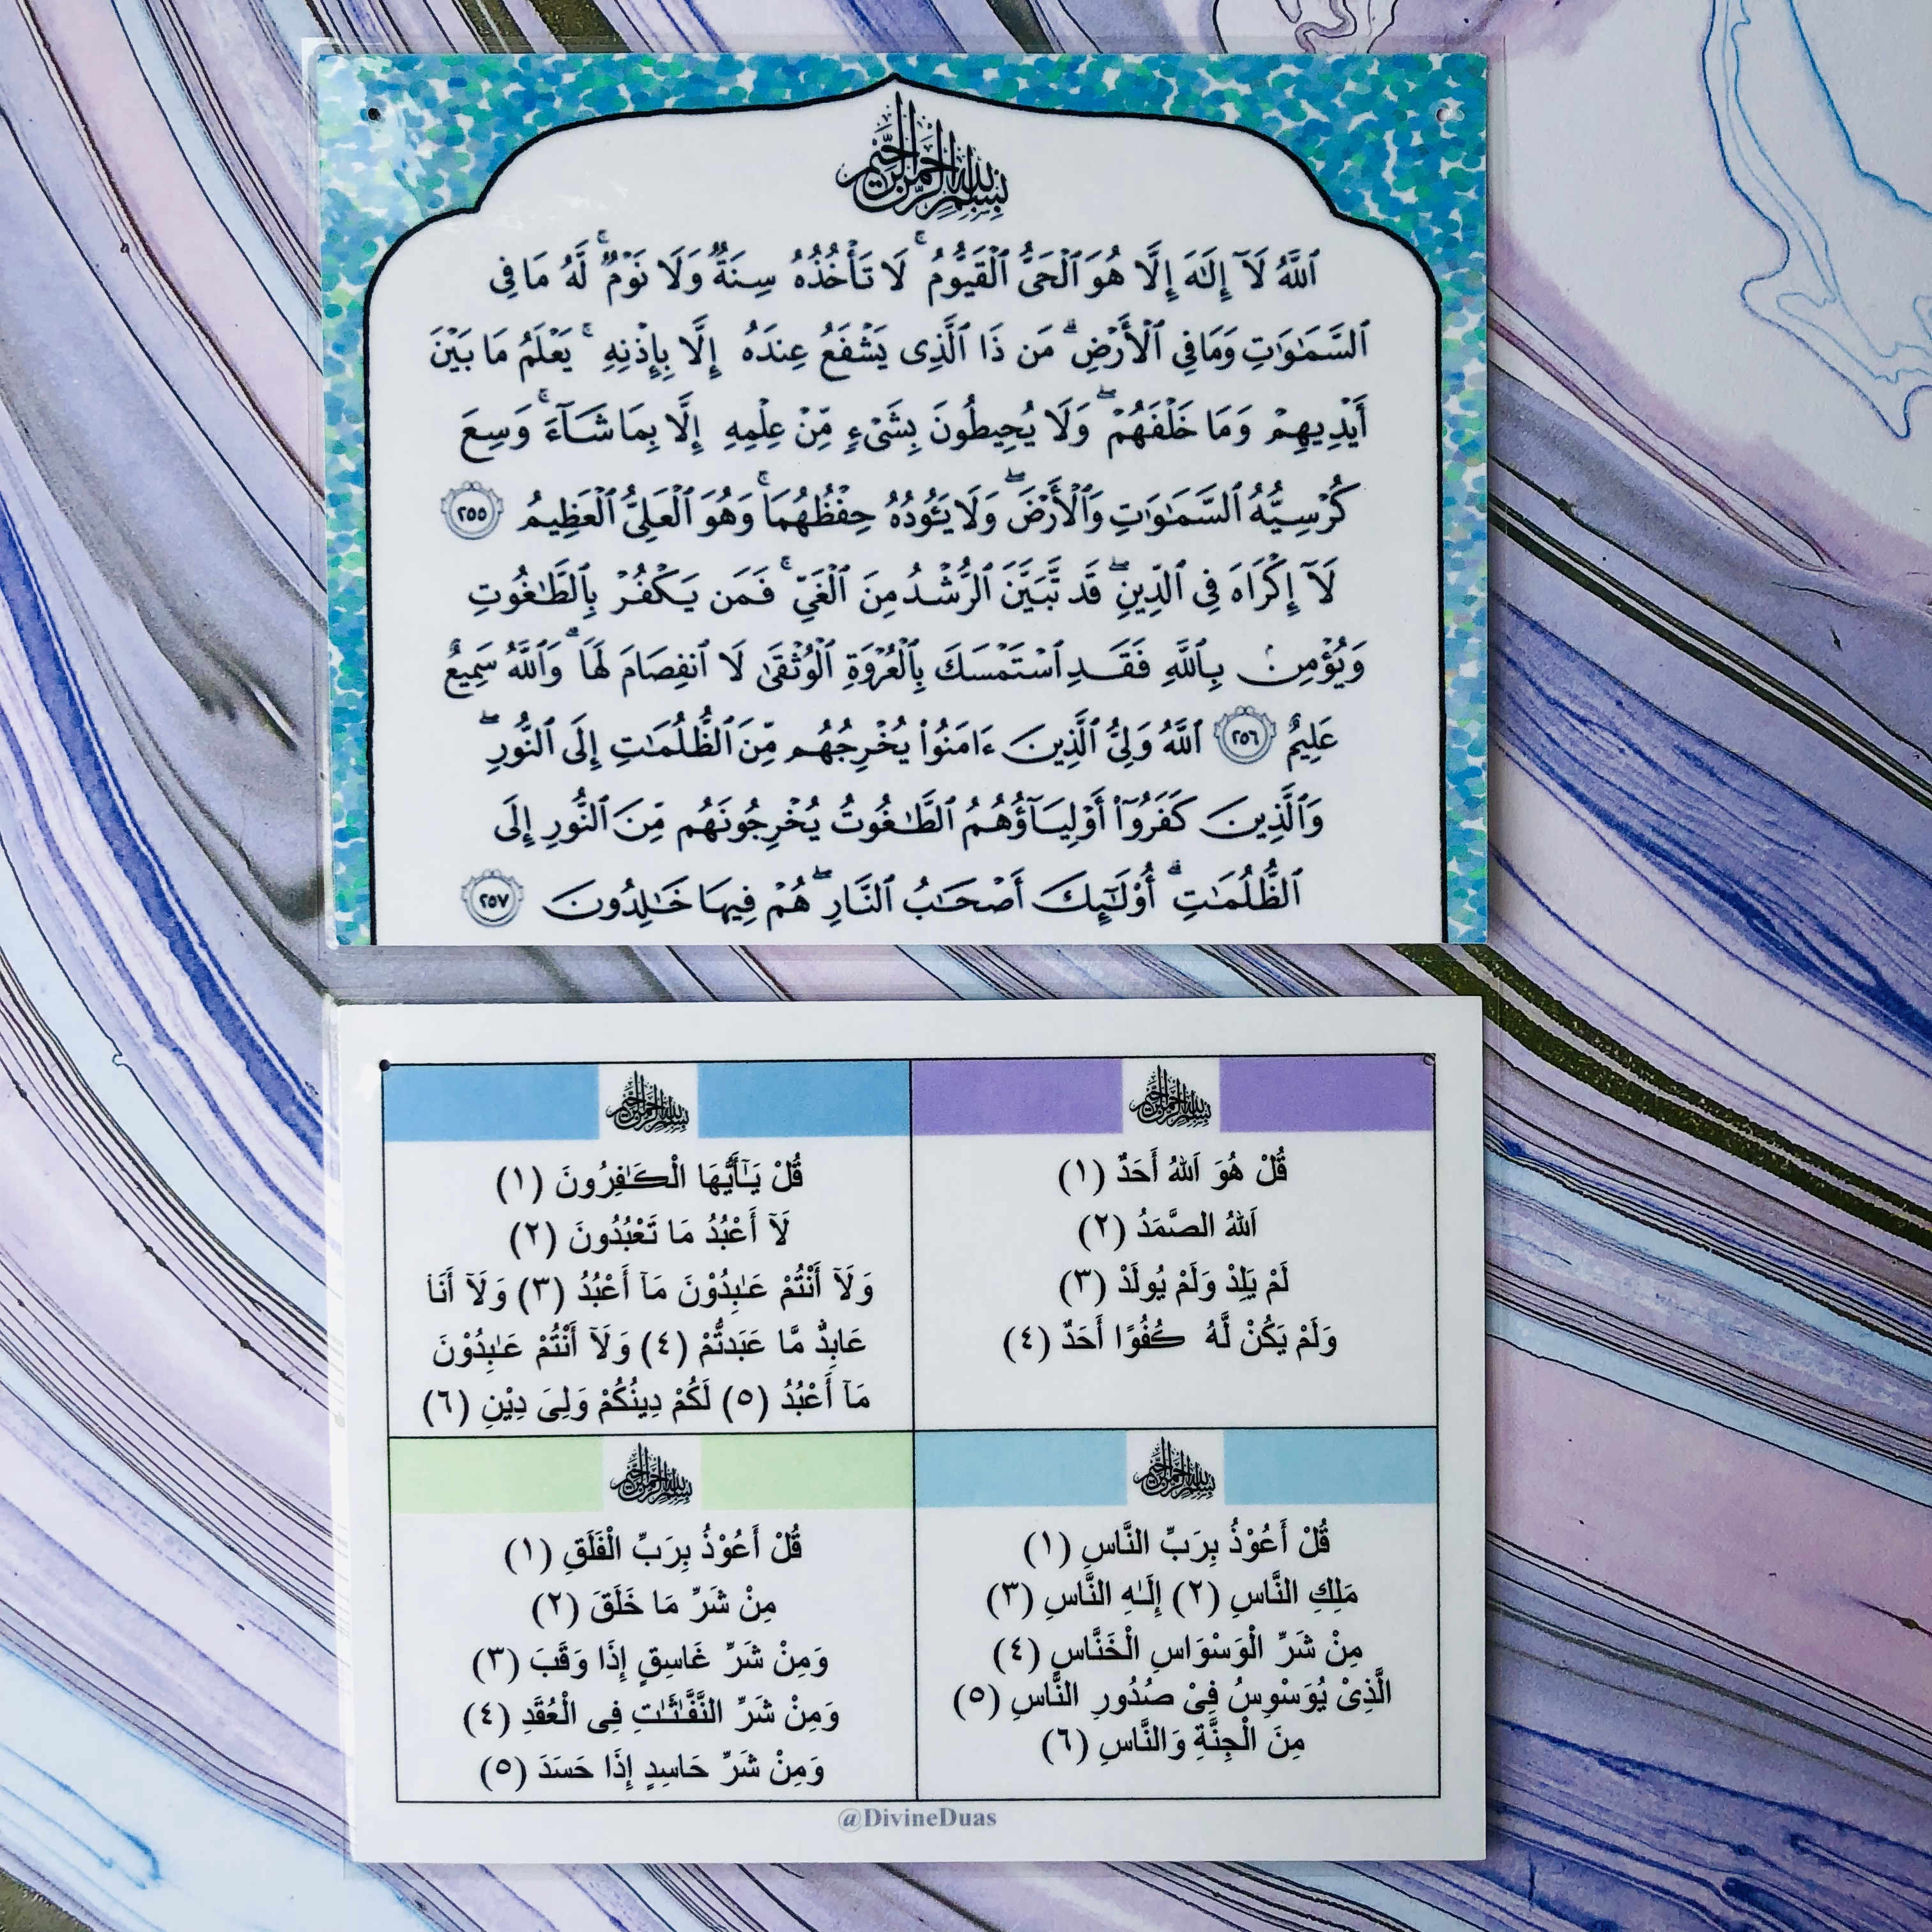 بسم الله الرحمن الرحيم
ٱللَّهُ لَآ إِلَٰهَ إِلَّا هُوَ ٱلْحَىُّ ٱلْقَيُّومُ ۚ لَا تَأْخُذُهُ سِنَةٌ وَلَا نَوْمٌ ۚ لَّهُ مَا فِى
ٱلسَّمَٰوَٰتِ وَمَا فِى ٱلْأَرْضِ ۗ مَن ذَا ٱلَّذِى يَشْفَعُ عِندَهُ إِلَّا بِإِذْنِهِ ۚ يَعْلَمُ مَا بَيْنَ
أَيْدِيهِمْ وَمَا خَلْفَهُمْ ۖ وَلَا يُحِيطُونَ بِشَىْءٍ مِّنْ عِلْمِهِ إِلَّا بِمَا شَآءَ ۚ وَسِعَ
كُرْسِيُّهُ ٱلسَّمَٰوَٰتِ وَٱلْأَرْضَ ۖ وَلَا يَـُٔودُهُ حِفْظُهُمَا ۚ وَهُوَ ٱلْعَلِىُّ ٱلْعَظِيمُ ٢٥٥
لَآ إِكْرَاهَ فِى ٱلدِّينِ ۖ قَد تَّبَيَّنَ ٱلرُّشْدُ مِنَ ٱلْغَىِّ ۚ فَمَن يَكْفُرْ بِٱلطَّٰغُوتِ
وَيُؤْمِنۢ بِٱللَّهِ فَقَدِ ٱسْتَمْسَكَ بِٱلْعُرْوَةِ ٱلْوُثْقَىٰ لَا ٱنفِصَامَ لَهَا ۗ وَٱللَّهُ سَمِيعٌ
عَلِيمٌ ٢٥٦ ٱللَّهُ وَلِىُّ ٱلَّذِينَ ءَامَنُوا۟ يُخْرِجُهُم مِّنَ ٱلظُّلُمَٰتِ إِلَى ٱلنُّورِ ۖ
وَٱلَّذِينَ كَفَرُوٓا۟ أَوْلِيَآؤُهُمُ ٱلطَّٰغُوتُ يُخْرِجُونَهُم مِّنَ ٱلنُّورِ إِلَى
ٱلظُّلُمَٰتِ ۗ أُو۟لَٰٓئِكَ أَصْحَٰبُ ٱلنَّارِ ۖ هُمْ فِيهَا خَٰلِدُونَ ٢٥٧
بسم الله الرحمن الرحيم
قُلْ هُوَ اَللهُ أَحَدٌ (١)
اَللهُ الصَّمَدُ (٢)
لَمْ يَلِدْ وَلَمْ يُولَدْ (٣)
وَلَمْ يَكُنْ لَّهُ كُفُوًا أَحَدٌ (٤)
بسم الله الرحمن الرحيم
قُلْ يَٰٓأَيُّهَا الْكَٰفِرُونَ (١)
لَآ أَعْبُدُ مَا تَعْبُدُونَ (٢)
وَلَآ أَنْتُمْ عَٰبِدُوْنَ مَآ أَعْبُدُ (٣) وَلَآ أَنَا۠
عَابِدٌ مَّا عَبَدتُّمْ (٤) وَلَآ أَنْتُمْ عَٰبِدُوْنَ
مَآ أَعْبُدُ (٥) لَكُمْ دِينُكُمْ وَلِىَ دِيْنِ (٦)
بسم الله الرحمن الرحيم
قُلْ أَعُوْذُ بِرَبِّ النَّاسِ (١)
مَلِكِ النَّاسِ (٢) إِلَٰهِ النَّاسِ (٣)
مِنْ شَرِّ الْوَسْوَاسِ الْخَنَّاسِ (٤)
الَّذِىْ يُوَسْوِسُ فِىْ صُدُورِ النَّاسِ (٥)
مِنَ الْجِنَّةِ وَالنَّاسِ (٦)
بسم الله الرحمن الرحيم
قُلْ أَعُوْذُ بِرَبِّ الْفَلَقِ (١)
مِنْ شَرِّ مَا خَلَقَ (٢)
وَمِنْ شَرِّ غَاسِقٍ إِذَا وَقَبَ (٣)
وَمِنْ شَرِّ النَّفَّٰثَٰتِ فِى الْعُقَدِ (٤)
وَمِنْ شَرِّ حَاسِدٍ إِذَا حَسَدَ (٥)
@DivineDuas